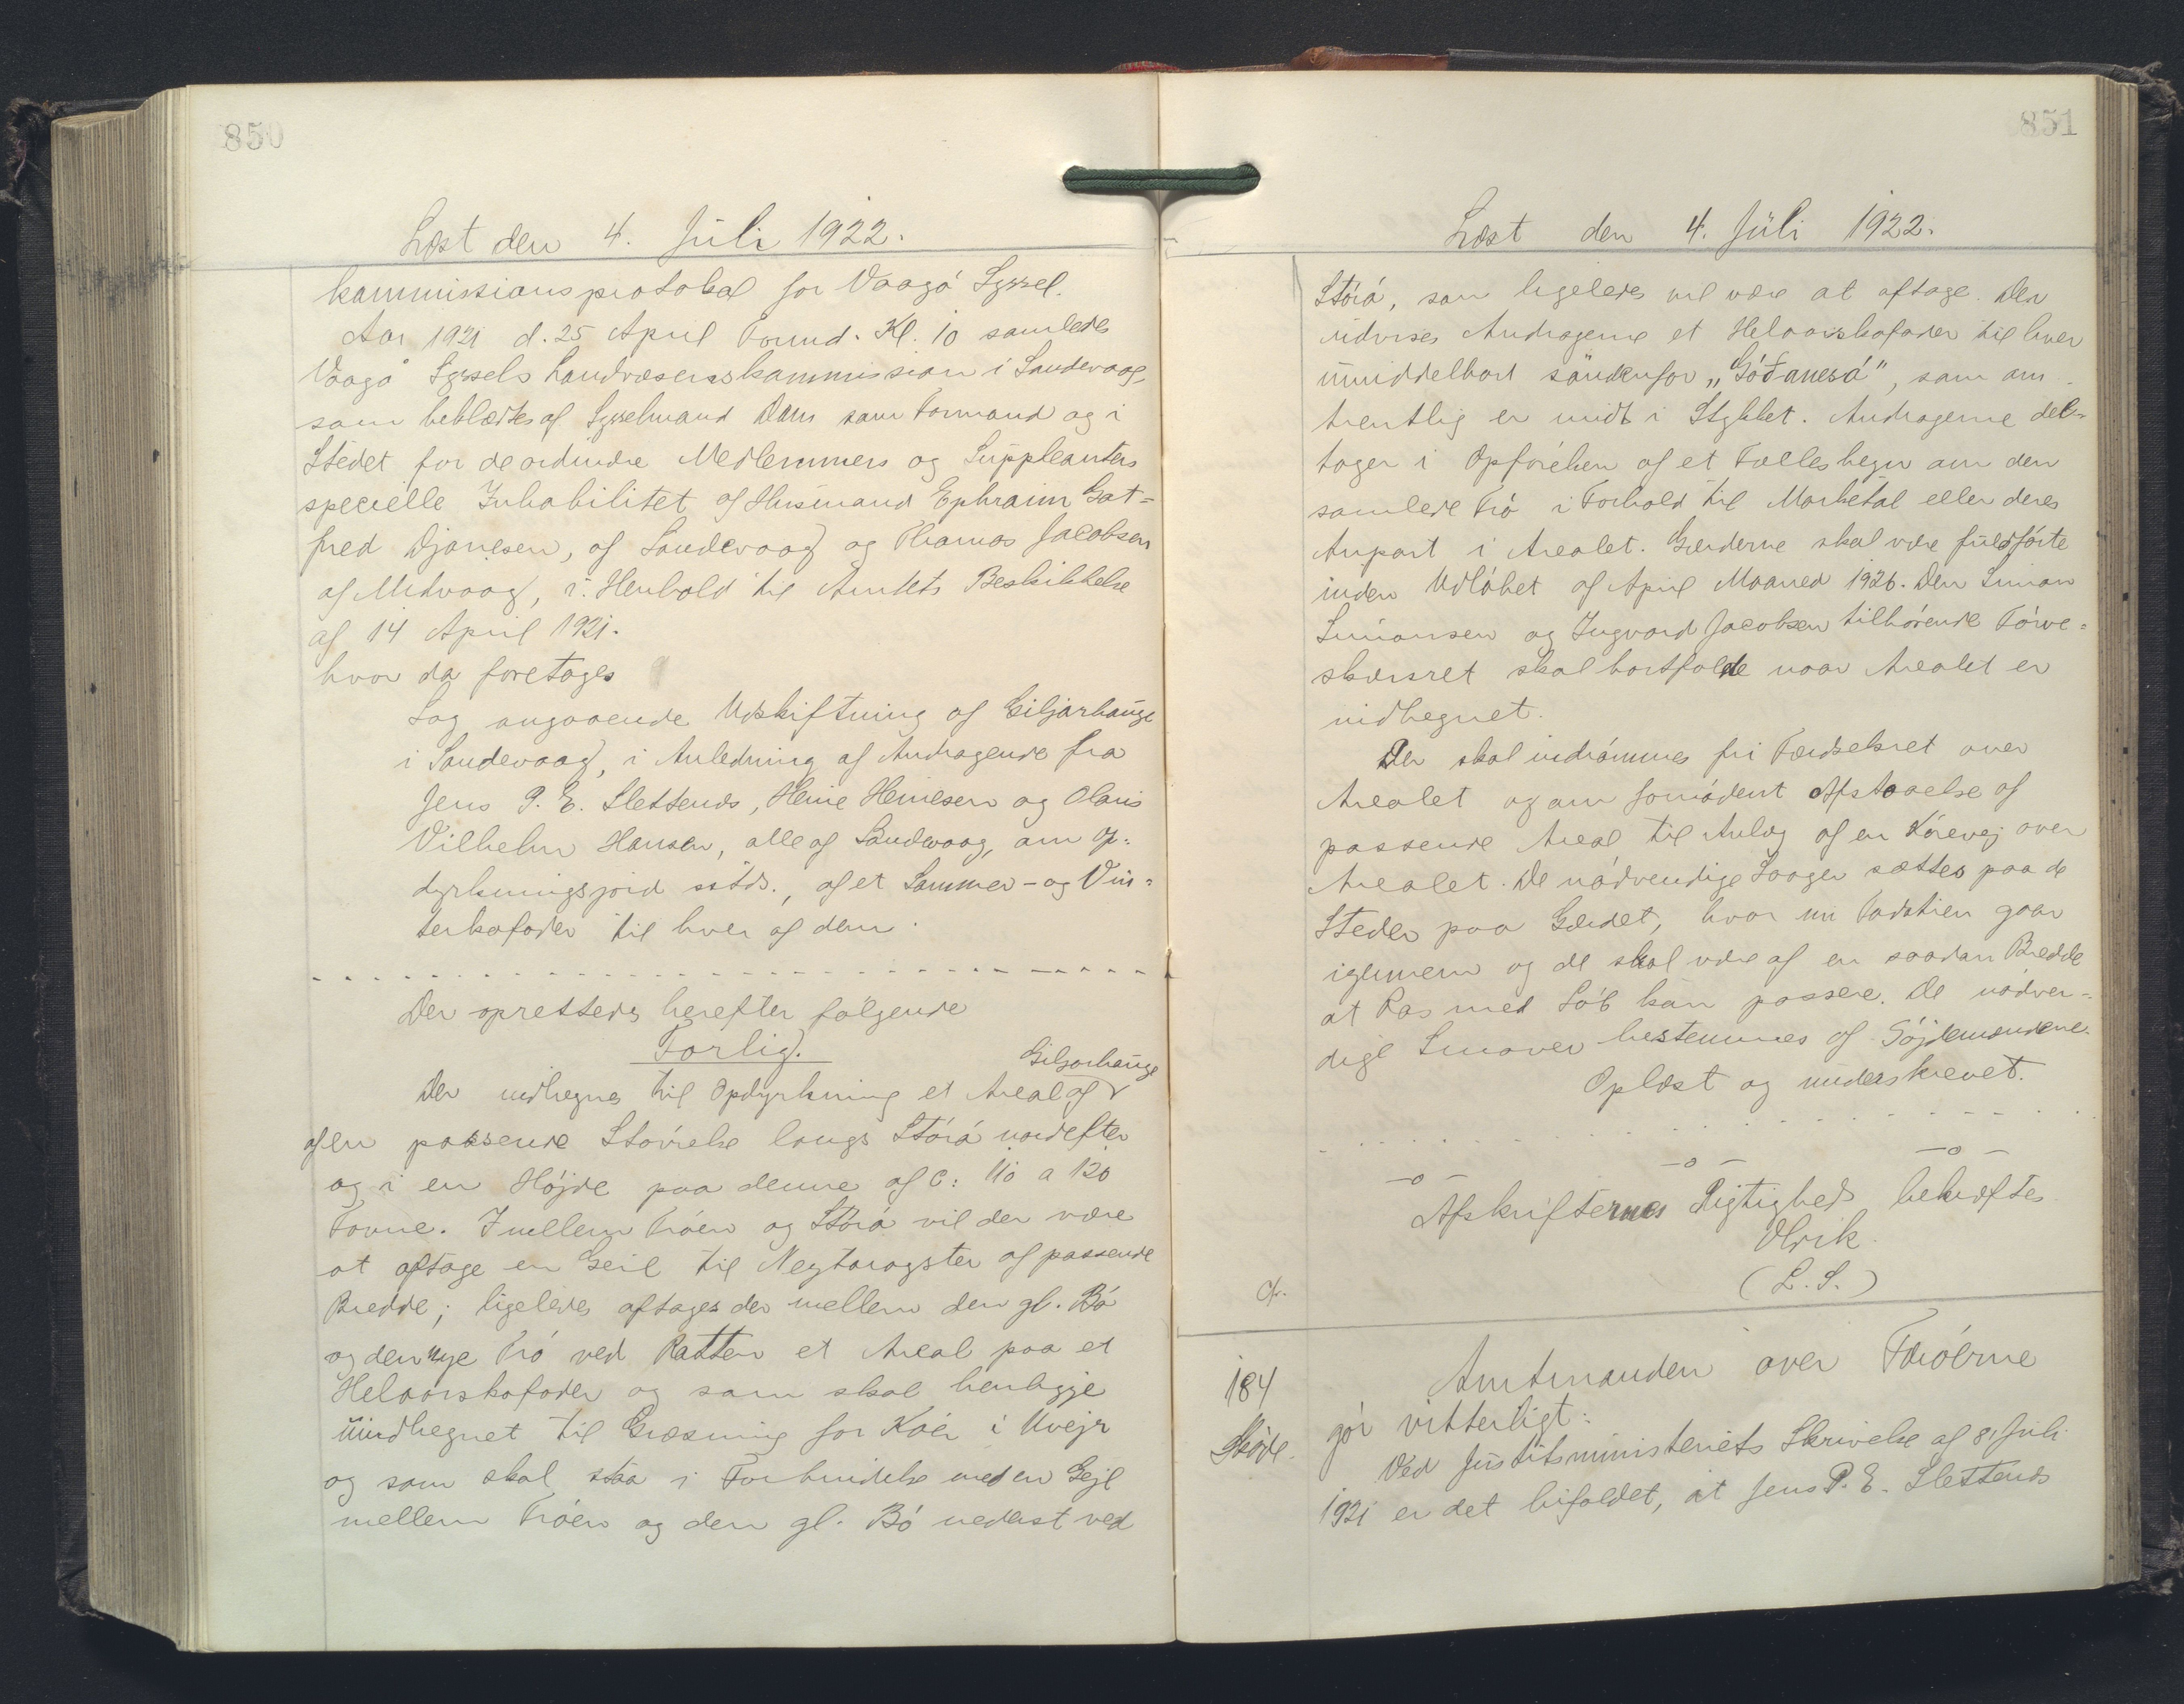 850
Læst den 4. Juli 1922.
kommissionsprotokol for Vaagó Syssel.
Aar 1921 d. 25 April Formd. Kl. 10 samledes
Vaagó Syssels Landvæsenskommission i Sandevaag,
som beklædtes af Sysselmand Dam som Formand og i
Stedet for de ordinære Medlemmers og Suppleanters
specielle Inhabilitet af Husmand Ephraim Got-
fred Djonesen, af Sandevaag og Thomas Jacobsen
af Midvaag, i Henhold til Amtets Beskikkelse
af 14 April 1921.
hvor da foretoges
Sag angaaende Udskiftning af Giljarhauge
i Sandevaag, i Anledning af Andragende fra
Jens P. E. Slettends, Heine Heinesen og Olaus
Vilhelm Hansen, alle af Sandevaag, om Op-
dyrkningsjord sstds., af et Sommer- og Vin-
terkofoder til hver af dem.
Der oprettedes herefter følgende
Forlig.
Giljarhauge
Der indhegnes til Opdyrkning et Areal af
af en passende Størrelse langs Stórá nordefter
og i en Højde paa denne af c: 110 a 120
Favne. Imellem Tróen og Stórá vil der være
at aftage en Geil til Neytarøgster af passende
Bredde; ligeledes aftages der mellem den gl. Bó
og den nye Tró ved Ratten et Areal paa et
Helaarskofoder og som skal henligge
uindhegnet til Græsning for Kóer i Uvejr
og som skal staa i Forbindelse med en Gejl
mellem Tróen og den gl. Bó nederst ved
851
Læst den 4. Juli 1922.
Stórá, som ligeledes vil være at aftage. Der
udvises Andragerne et Helaarskofoder til hver
umiddelbart søndenfor „Góðanesá", som om-
trentlig er midt i Stykket. Andragerne del-
tager i Opførelsen af et Fælleshegn om den
samlede Tró i Forhold til Marketal eller deres
Anpart i Arealet. Gærderne skal være fuldførte
inden Udløbet af April Maaned 1926. Den Simon
Simonsen og Ingvard Jacobsen tilhørende Tørve-
skærsret skal bortfalde naar Arealet er
indhegnet.
Der skal indrømmes fri Færdselsret over
Arealet og om fornødent Afstaaelse af
passende Areal til Anlæg af en Kørevej over
Arealet. De nødvendige Laager sættes paa de
Steder paa Gærdet, hvor nu Fodstien gaar
igennem og de skal være af en saadan Bredde
at Ros med Løb kan passere. De nødven-
dige Smover bestemmes af Sójdemændene.
Oplæst og underskrevet.
-o- -o- -o-
Afskrifternes Rigtighed bekræftes
Ulrik.
(L. S.)
184
Skøde.
Amtmanden over Færøerne
gør vitterligt:
Ved Justitsministeriets Skrivelse af 8. Juli
1921 er det bifaldet, at Jens P. E. Slettends